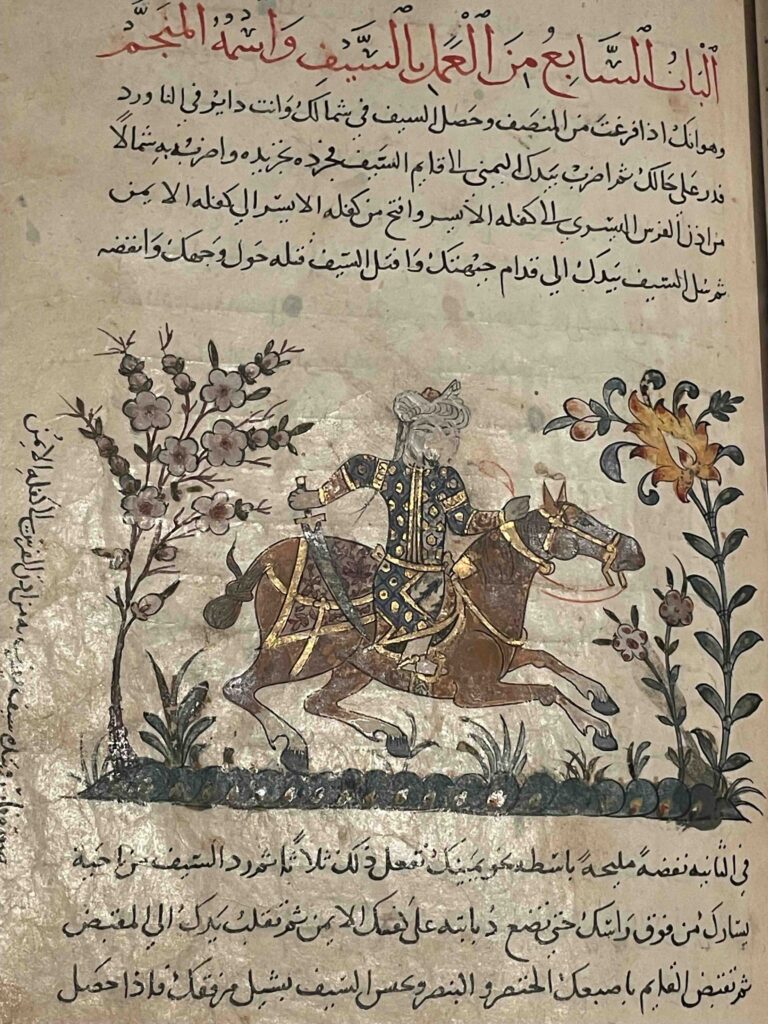 الباب السابع من العمل بالسيف واسمه المنجم
وهو انك اذا فرغت من المنصف وحصل السيف في شمالك وانت داير في الناورد
فدر على حالك ثم اضرب بيدك اليمنى الى قايم السيف فجرده تجريده واضرب به شمالا
من اذن الفرس اليسرى الى كفله الايسر وافتح من كفله الايسر الى كفله الايمن
ثم شل السيف بيدك الى قدام جبهتك وافتل السيف فتله حول وجهك وانفضه
من اذن الفرس الى كفله الايمن
في الثانيه نفضة مليحة باسطه نحو يمينك تفعل ذلك ثلاثا ثم رد السيف من ناحية
يسارك من فوق راسك حتى تضع ذبابته على كفك الايمن ثم تقلب يدك الى المقبض
ثم تقبض القايم باصبعك الخنصر والبنصر وعس السيف بشيل مرفقك فاذا حصل